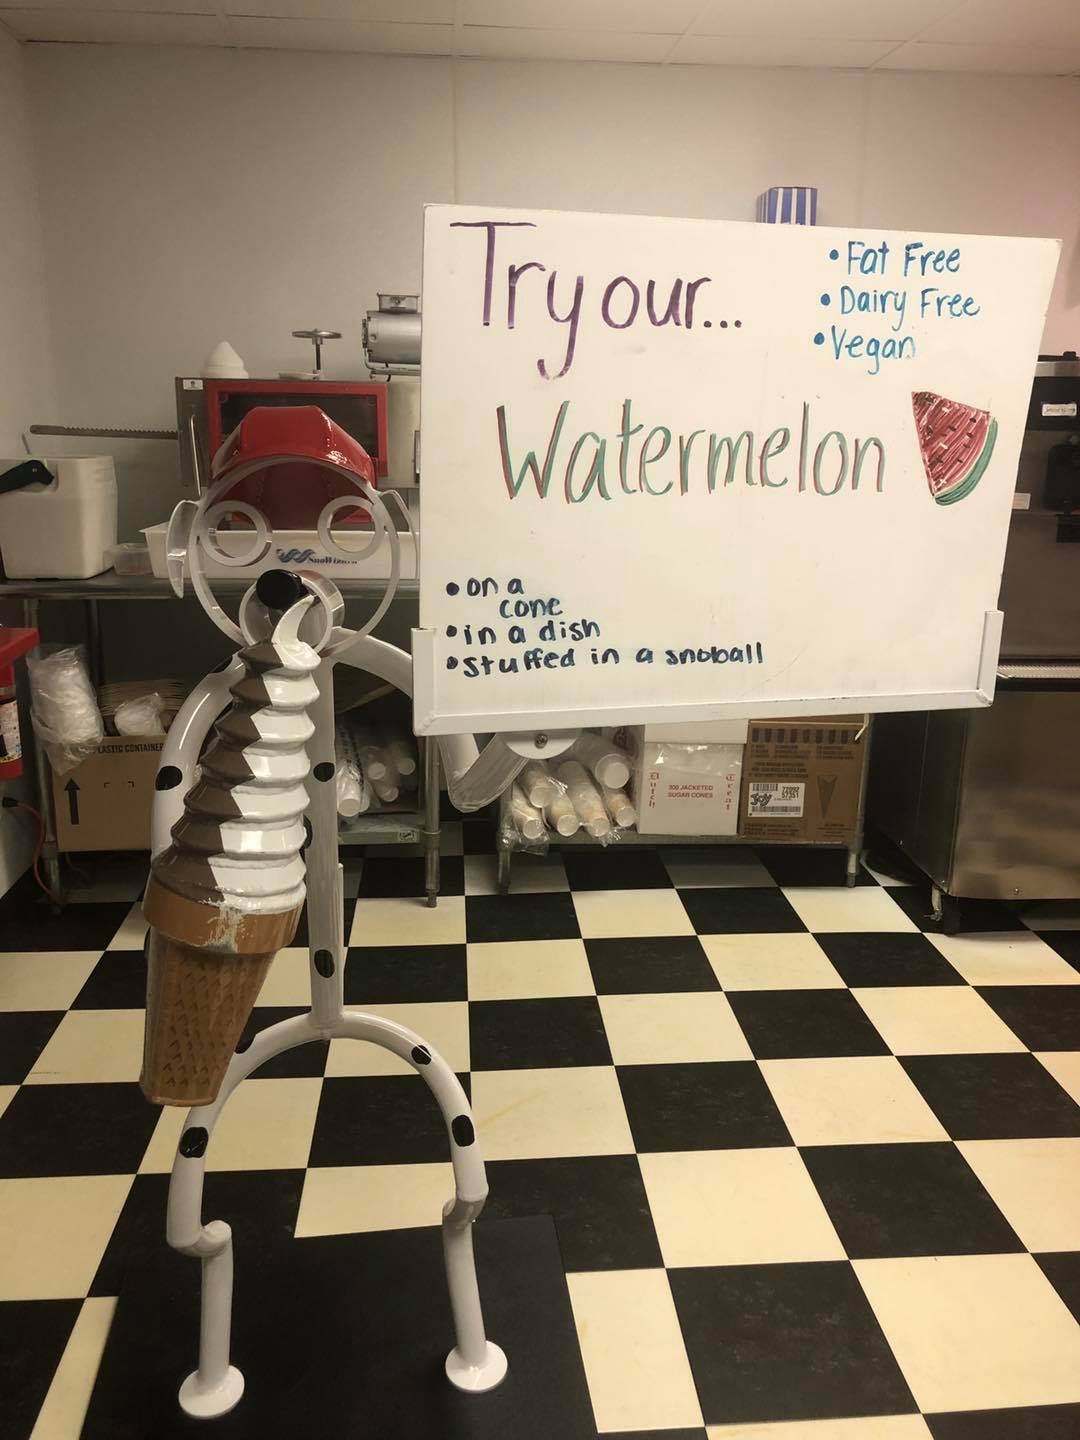 Try our...
• Fat Free
• Dairy Free
• Vegan
Watermelon
• on a
cone
• in a dish
• stuffed in a snoball
SnoWizard
PLASTIC CONTAINER
Dutch
300 JACKETED
SUGAR CONES
Treat
JOY